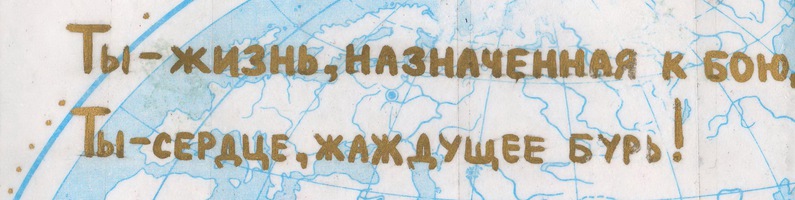 Ты-жизнь, назначенная к бою,
Ты-сердце, жаждущее бурь!